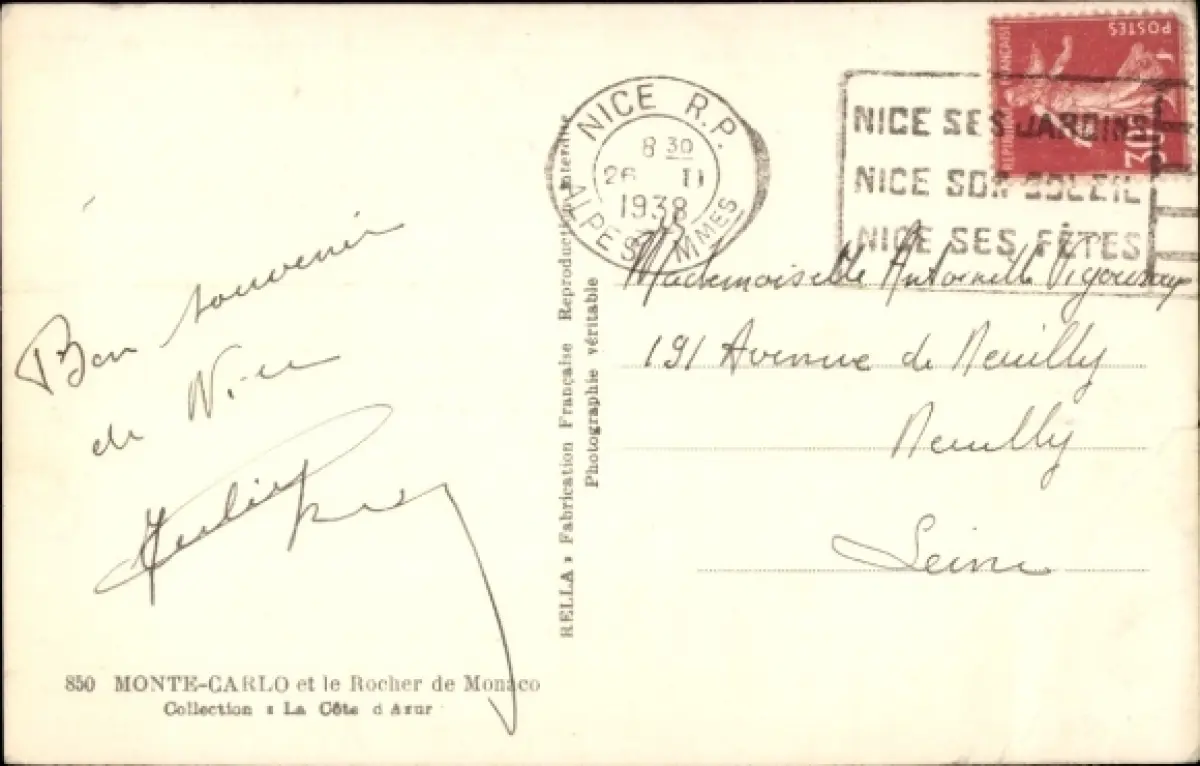 Bon souvenir
de Nice
850 MONTE-CARLO et le Rocher de Monaco
Collection : La Côte d Azur
RELLA : Fabrication Française Reproduction Interdite
Photographie véritable
NICE R.P.
8 30
26 II
1938
ALPES MMES
NICE SES JARDINS
NICE SON SOLEIL
NICE SES FÊTES
POSTES
REPUBLIQUE FRANÇAISE
30c
Mademoiselle Antoinette
191 Avenue de Neuilly
Neuilly
Seine